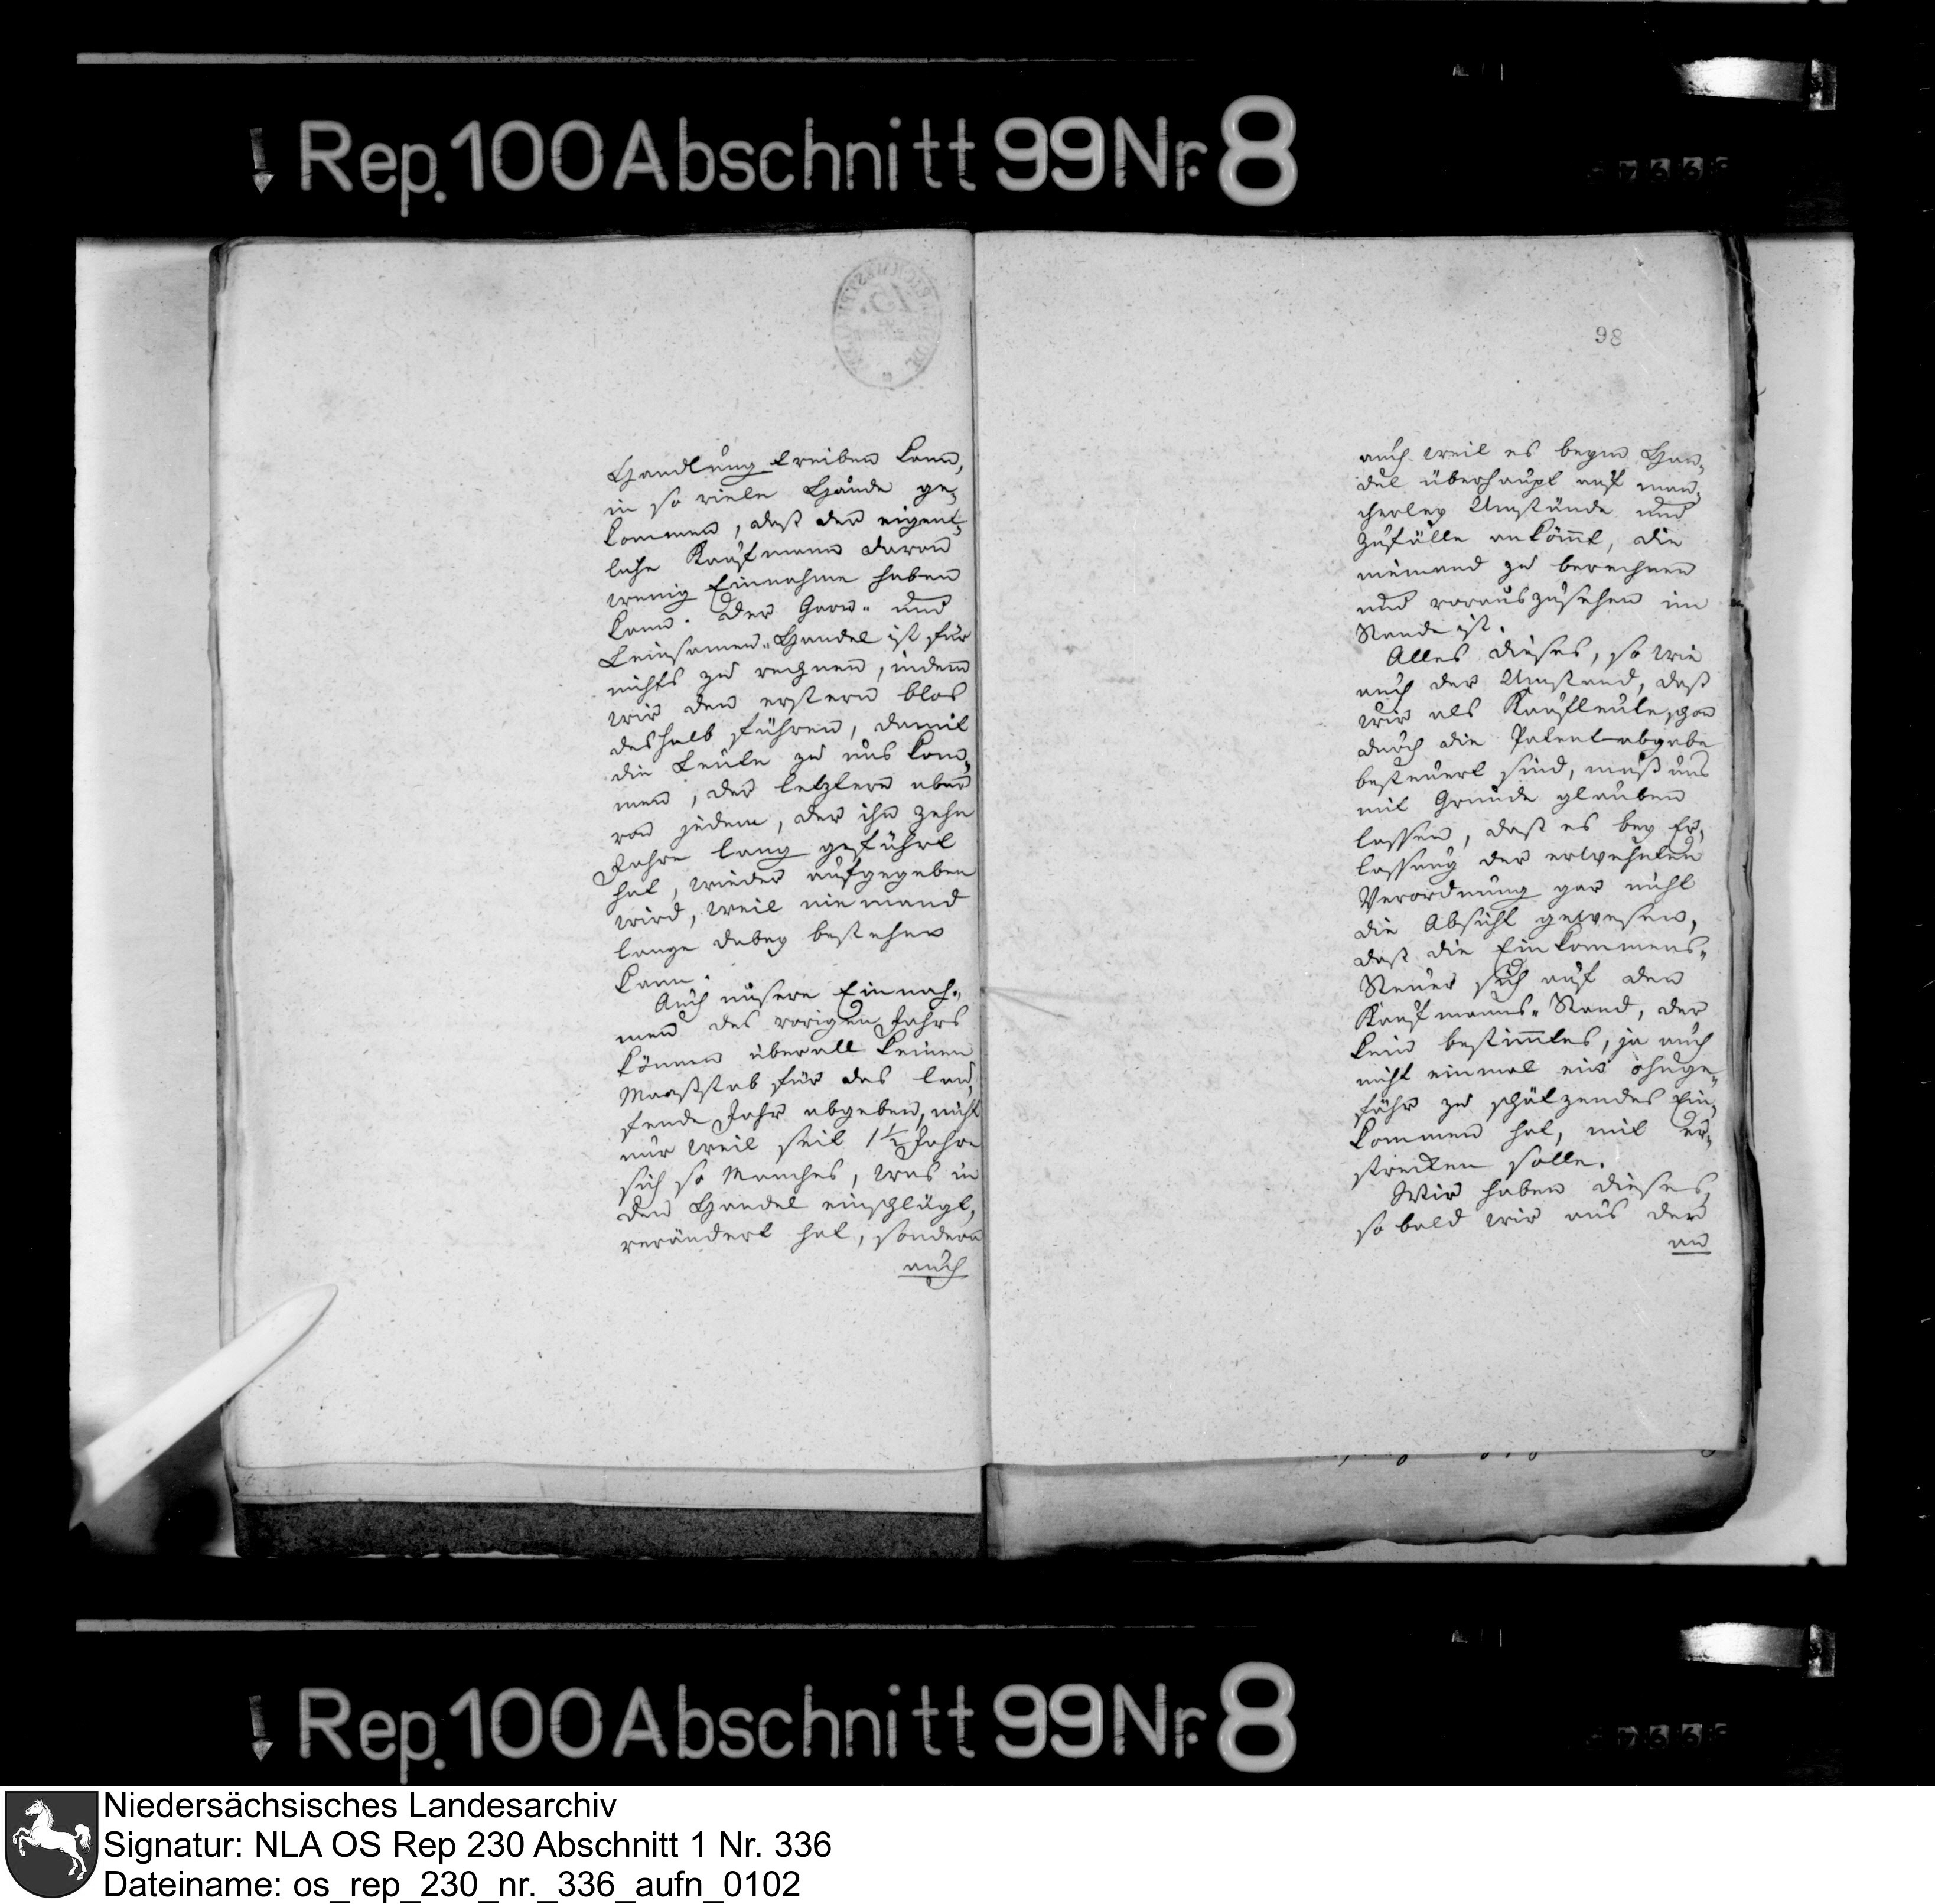 Rep. 100 Abschnitt 99 Nr. 8
98
Handlung treiben kann,
in so viele Hände ge-
kommen, daß der eigent-
liche Kaufmann davon
wenig Einnahme haben
kann. Der Garn- und
Leinsamen-Handel ist für
nichts zu rechnen, indem
wir den erstern blos
deshalb führen, damit
die Leute zu uns kom-
men, der letztere aber
von jedem, der ihn zehn
Jahre lang geführt
hat, wieder aufgegeben
wird, weil niemand
lange dabey bestehen
kann.
Auch unsere Einnah-
men des vorigen Jahrs
können überall keinen
Maaßstab für das lau-
fende Jahr abgeben, nicht
nur weil seit 1 1/2 Jahre
sich so Manches, was in
den Handel einschlägt,
verändert hat, sondern
auch
auch weil es beym Han-
del überhaupt auf man-
cherley Umstände und
Zufälle ankömt, die
niemand zu berechnen
und vorauszusehen im
Stande ist.
Alles dieses, so wie
auch der Umstand, daß
wir als Kaufleute schon
durch die Patentabgabe
besteuert sind, muß uns
mit Grunde glauben
lassen, daß es bey Er-
lassung der erwehnten
Verordnung gar nicht
die Absicht gewesen,
daß die Einkommens-
Steuer sich auf den
Kaufmanns-Stand, der
kein bestimtes, ja auch
nicht einmal ein ohnge-
fähr zu schätzendes Ein-
kommen hat, mit er-
strecken solle.
Wir haben dieses,
so bald wir aus der
an
Rep. 100 Abschnitt 99 Nr. 8
Niedersächsisches Landesarchiv
Signatur: NLA OS Rep 230 Abschnitt 1 Nr. 336
Dateiname: os_rep_230_nr._336_aufn_0102